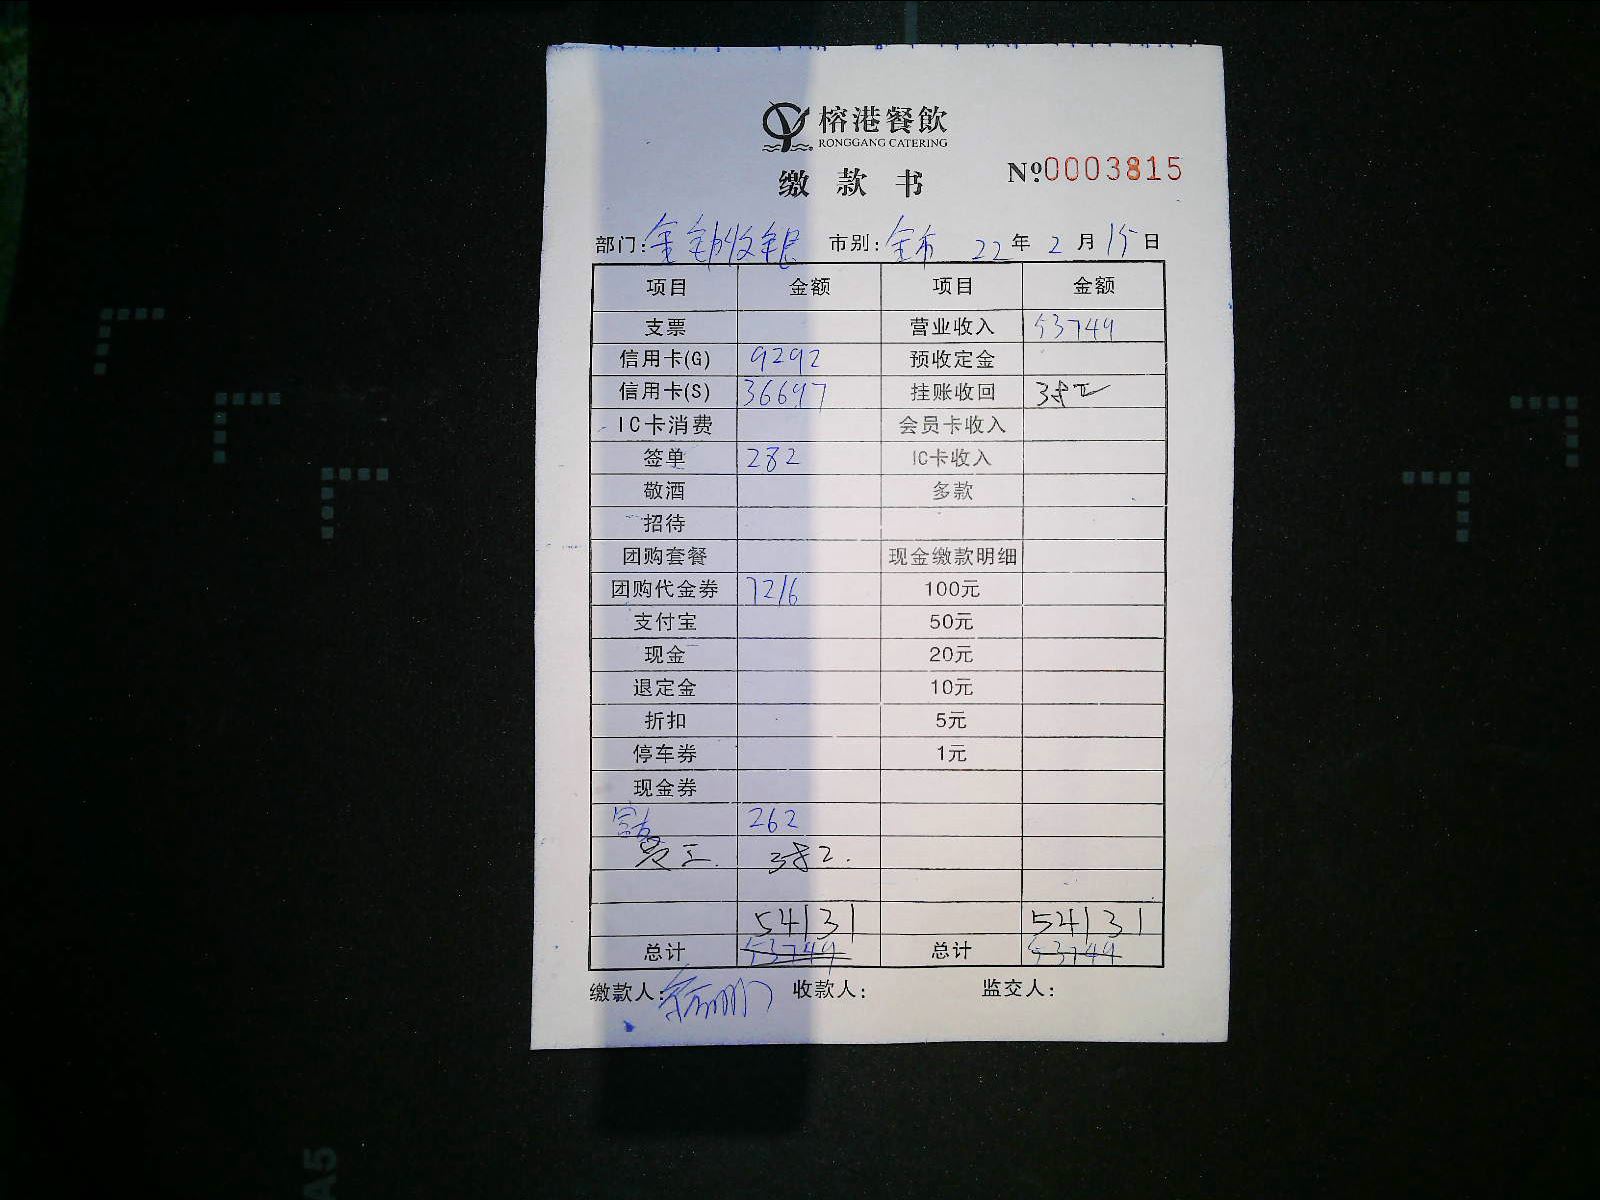 榕港餐飲
RONGGANG CATERING
缴款书
Nº:0003815
部门: 收银 市别: 全市 22年2月15日
项目 金额 项目 金额
支票 营业收入 53749
信用卡(G) 9292 预收定金
信用卡(S) 36697 挂账收回 382
IC卡消费 会员卡收入
签单 282 IC卡收入
敬酒 多款
招待
团购套餐 现金缴款明细
团购代金券 7216 100元
支付宝 50元
现金 20元
退定金 10元
折扣 5元
停车券 1元
现金券
262
员工. 382.
54131 54131
总计 53749 总计 53744
缴款人: 收款人: 监交人:
A5